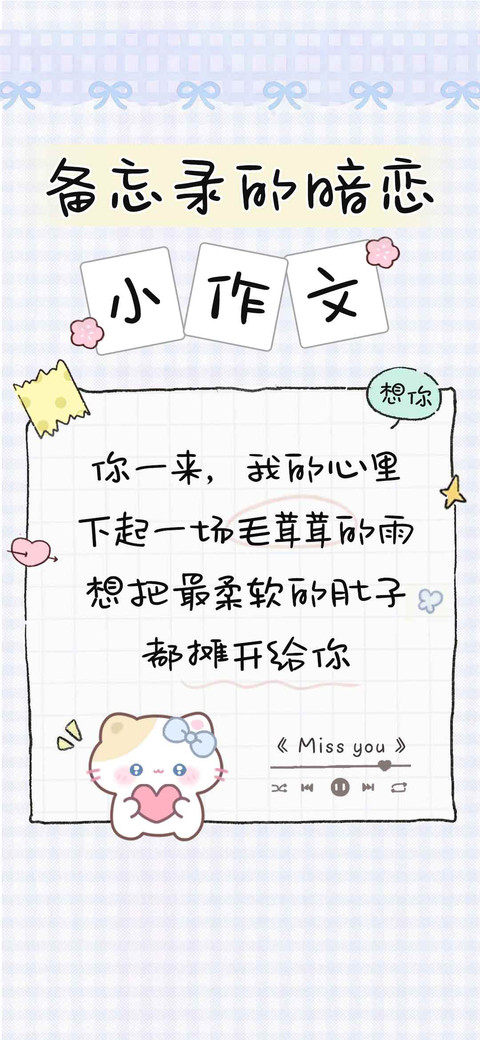 备忘录的暗恋
小作文
想你
你一来，我的心里
下起一场毛茸茸的雨
想把最柔软的肚子
都摊开给你
《 Miss you 》